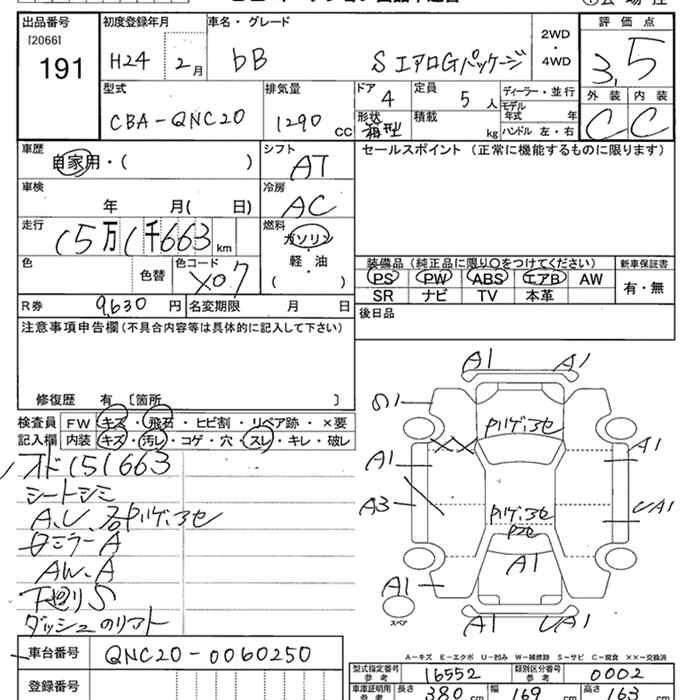 出品番号 初度登録年月 車名・グレード 評価点
[2066]
191 H24 2月 bB S エアロGパッケージ 2WD・4WD 3.5
外装 内装
C C
型式 排気量 ドア 定員 ディーラー・並行
CBA-QNC20 1290 CC 4 5人 モデル年式 年
形状 積載
箱型 kg ハンドル 左・右
車歴 シフト セールスポイント (正常に機能するものに限ります)
自家用・( ) AT
車検 冷房
年 月( 日) AC
走行 燃料
15万1千663 km ガソリン
軽・油
( ・ )
色 色替 色コード
X07
装備品(純正品に限り○をつけてください) 新車保証書
PS PW ABS エアB AW 有・無
SR ナビ TV 本革
R券 9,630円 名変期限 月 日 後日品
注意事項申告欄(不具合内容等は具体的に記入して下さい)
修復歴 有 〔箇所 〕
検査員 FW キズ・飛石・ヒビ割・リペア跡・×要
記入欄 内装 キズ・汚レ・コゲ・穴・スレ・キレ・破レ
オド151663
シートシミ
ミラーA
AW、A
下廻りS
ダッシュのリアト
A1 A1
A1 A1
A3 A1
A1
A1
A1
XX
スペア
A-キズ E-エクボ U-凹み W-補修跡 S-サビ C-腐食 ××-交換済
車台番号 QNC20-0060250
登録番号
型式指定番号 参考 16552 類別区分番号 参考 0002
車庫証明用 参考 長さ 380 cm 幅 169 cm 高さ 163 cm